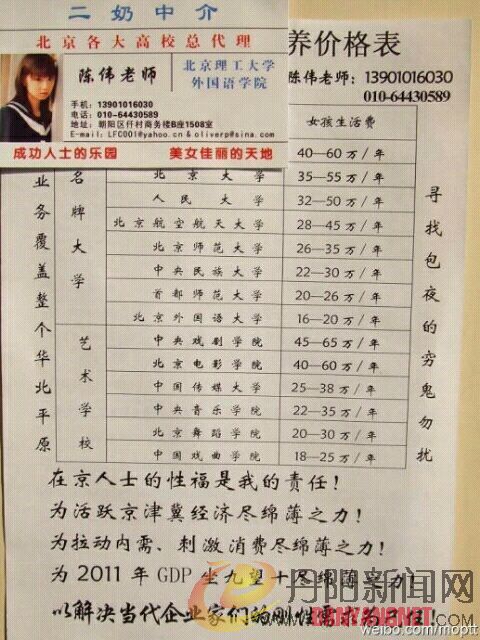 二奶中介
北京各大高校总代理
陈伟老师
北京理工大学
外国语学院
手机：13901016030
电话：010-64430589
地址：朝阳区仟村商务楼B座1508室
E-mail：LFC001@yahoo.cn & oliverp@sina.com
成功人士的乐园 美女佳丽的天地
养价格表
陈伟老师：13901016030
010-64430589
女孩生活费
业务覆盖整个华北平原
名牌大学
40—60 万/年
北京大学 35—55 万/年
人民大学 32—50 万/年
北京航空航天大学 28—45 万/年
北京师范大学 26—35 万/年
中央民族大学 22—30 万/年
首都师范大学 20—26 万/年
北京外国语大学 16—20 万/年
艺术学校
中央戏剧学院 45—65 万/年
北京电影学院 40—60 万/年
中国传媒大学 25—38 万/年
中央音乐学院 22—35 万/年
北京舞蹈学院 20—30 万/年
中国戏曲学院 18—25 万/年
寻找包夜的穷鬼勿扰
在京人士的性福是我的责任！
为活跃京津冀经济尽绵薄之力！
为拉动内需、刺激消费尽绵薄之力！
为 2011 年 GDP 生九望十尽绵薄之力！
以解决当代企业家们的刚性需求为己任！
丹阳新闻网
weibo.com/moptt